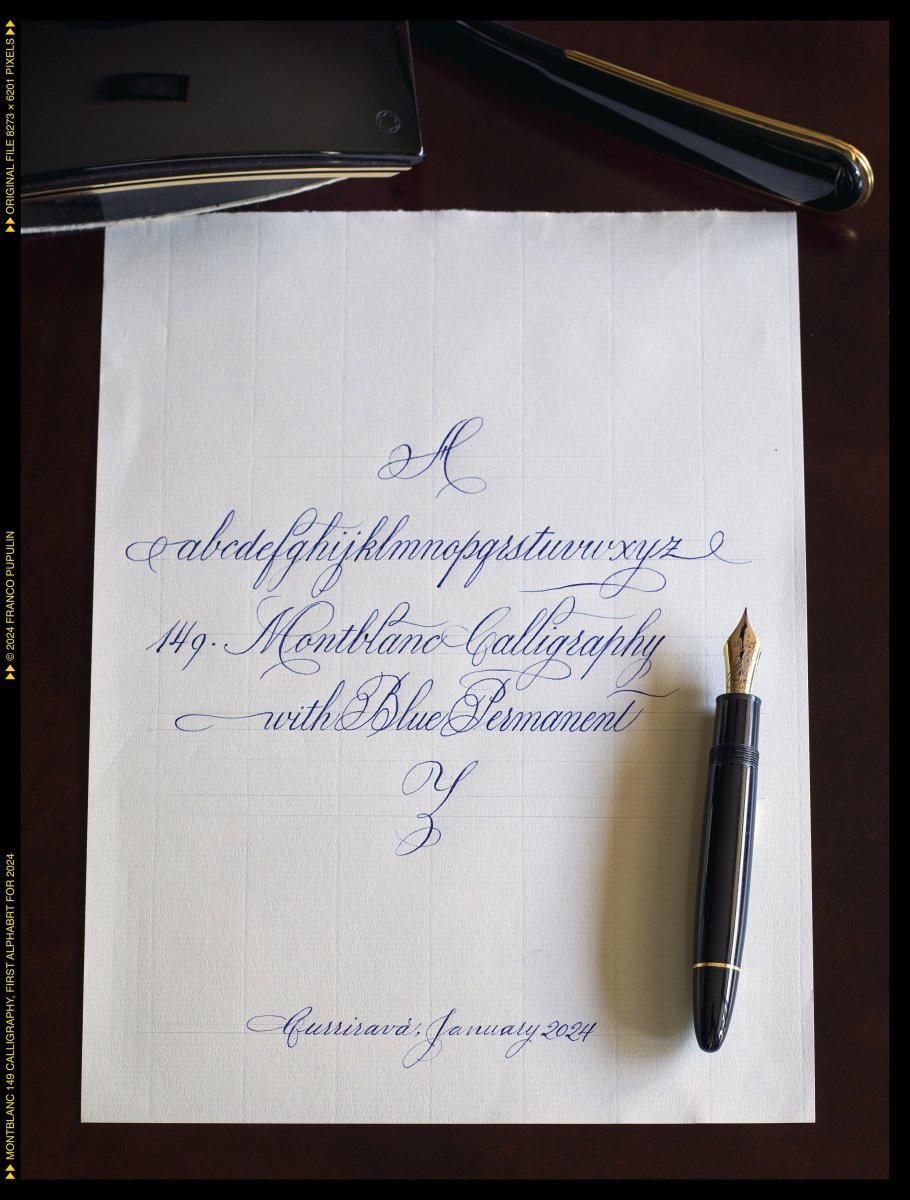 A
abcdefghijklmnopqrstuvwxyz
149. Montblanc Calligraphy
with Blue Permanent
Z
Curriravá, January 2024
▶▶ ORIGINAL FILE 8273 × 6201 PIXELS ▶▶
▶▶ © 2024 FRANCO PUPULIN
▶▶ MONTBLANC 149 CALLIGRAPHY, FIRST ALPHABRT FOR 2024 ▶▶